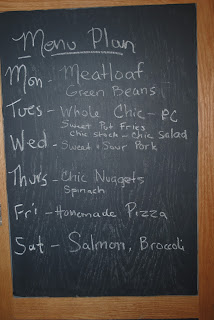 Menu Plan
Mon - Meatloaf
Green Beans
Tues - Whole Chic - PC
Sweet Pot Fries
Chic Stock - Chic Salad
Wed - Sweet & Sour Pork
Thurs - Chic Nuggets
Spinach
Fri - Homemade Pizza
Sat - Salmon, Broccoli